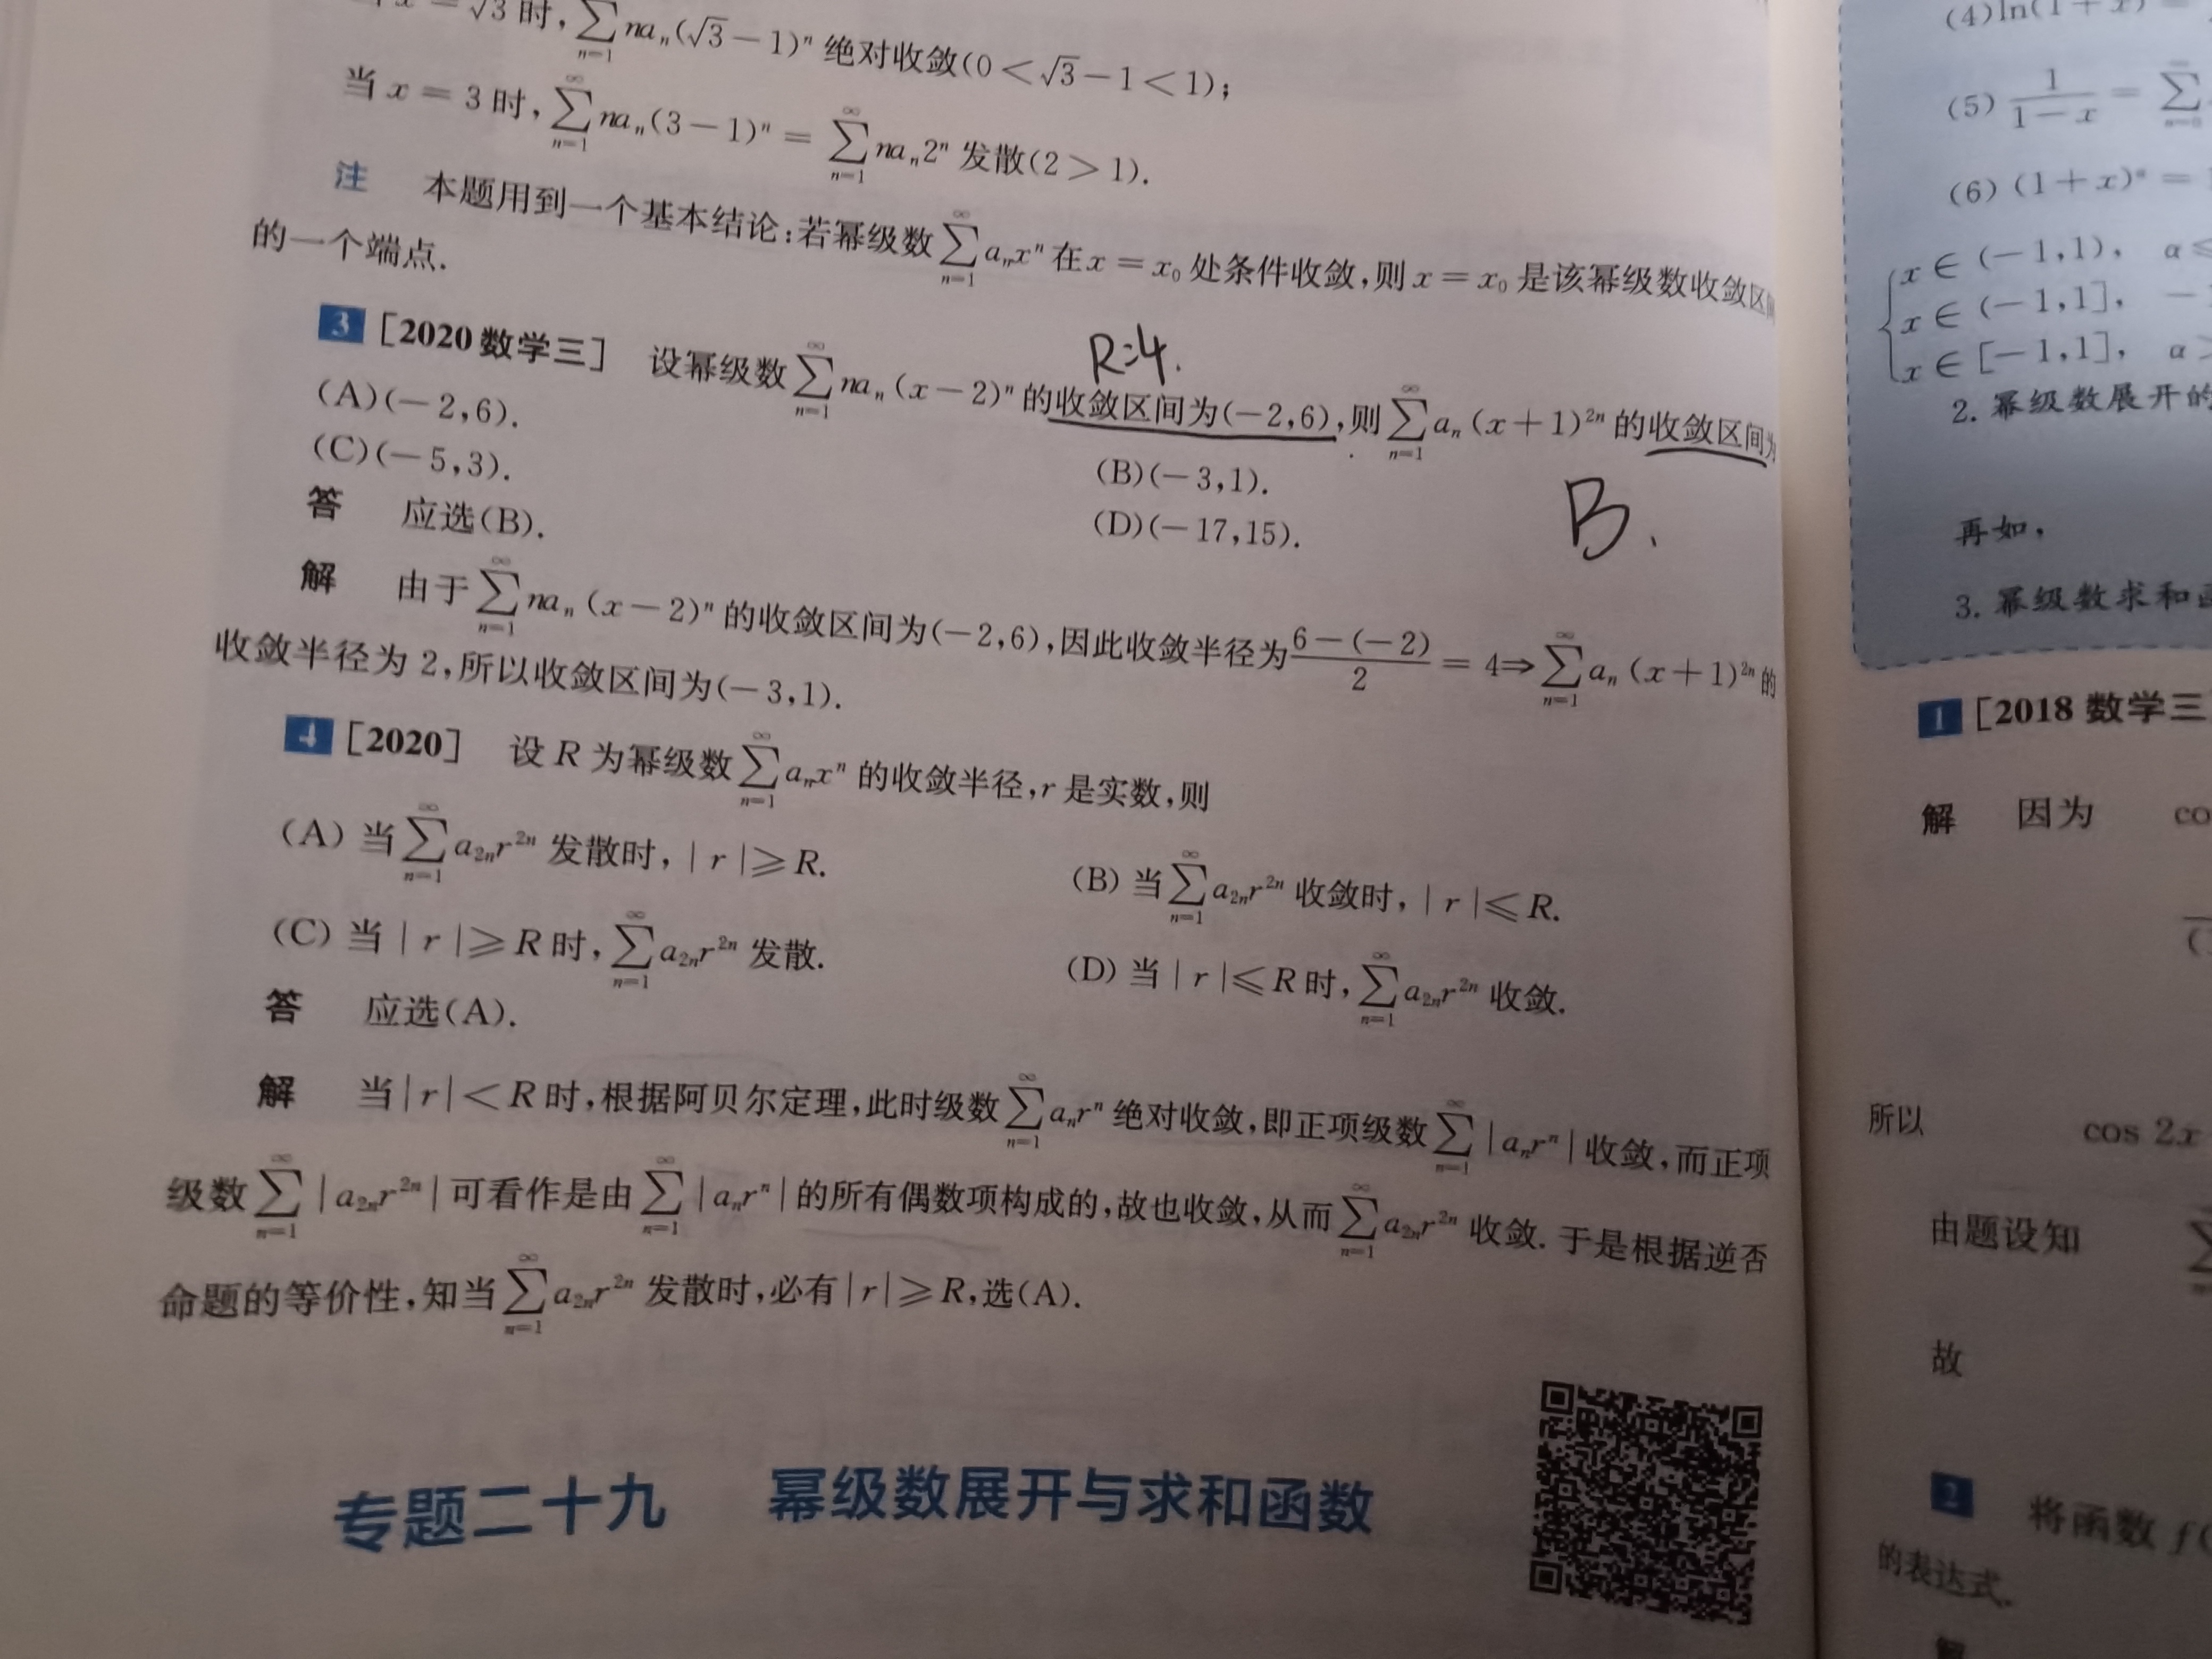 x = √3 时, ∑_{n=1} na_n(√3−1)^n 绝对收敛(0<√3−1<1);
当 x = 3 时, ∑_{n=1}^{∞} na_n(3−1)^n = ∑_{n=1}^{∞} na_n2^n 发散(2>1).
注 本题用到一个基本结论:若幂级数∑_{n=1}^{∞} a_nx^n 在 x = x_0 处条件收敛,则 x = x_0 是该幂级数收敛区
的一个端点.
R=4.
3 [2020 数学三] 设幂级数∑_{n=1}^{∞} na_n(x−2)^n 的收敛区间为(−2,6),则∑_{n=1}^{∞} a_n(x+1)^{2n} 的收敛区间为
(A)(−2,6). (B)(−3,1).
(C)(−5,3). (D)(−17,15).
B.
答 应选(B).
解 由于∑_{n=1}^{∞} na_n(x−2)^n 的收敛区间为(−2,6),因此收敛半径为(6−(−2))/2 = 4⇒∑_{n=1}^{∞} a_n(x+1)^{2n} 的
收敛半径为 2,所以收敛区间为(−3,1).
4 [2020] 设 R 为幂级数∑_{n=1}^{∞} a_nx^n 的收敛半径,r 是实数,则
(A) 当∑_{n=1}^{∞} a_{2n}r^{2n} 发散时,|r|⩾R. (B) 当∑_{n=1}^{∞} a_{2n}r^{2n} 收敛时,|r|⩽R.
(C) 当|r|⩾R时,∑_{n=1}^{∞} a_{2n}r^{2n} 发散. (D) 当|r|⩽R时,∑_{n=1}^{∞} a_{2n}r^{2n} 收敛.
答 应选(A).
解 当|r|<R时,根据阿贝尔定理,此时级数∑_{n=1}^{∞} a_nr^n 绝对收敛,即正项级数∑_{n=1}^{∞} |a_nr^n|收敛,而正项
级数∑_{n=1}^{∞} |a_{2n}r^{2n}|可看作是由∑_{n=1}^{∞} |a_nr^n|的所有偶数项构成的,故也收敛,从而∑_{n=1}^{∞} a_{2n}r^{2n} 收敛.于是根据逆否
命题的等价性,知当∑_{n=1}^{∞} a_{2n}r^{2n} 发散时,必有|r|⩾R,选(A).
专题二十九 幂级数展开与求和函数
(4)ln(1+x)=
(5) 1/(1−x) = ∑
(6) (1+x)^α =
x ∈ (−1,1), α⩽
x ∈ (−1,1], −
x ∈ [−1,1], α>
2. 幂级数展开的
再如,
3. 幂级数求和
1 [2018 数学三
解 因为 co
所以 cos 2x
由题设知 ∑
故
2 将函数 f(
的表达式.
解